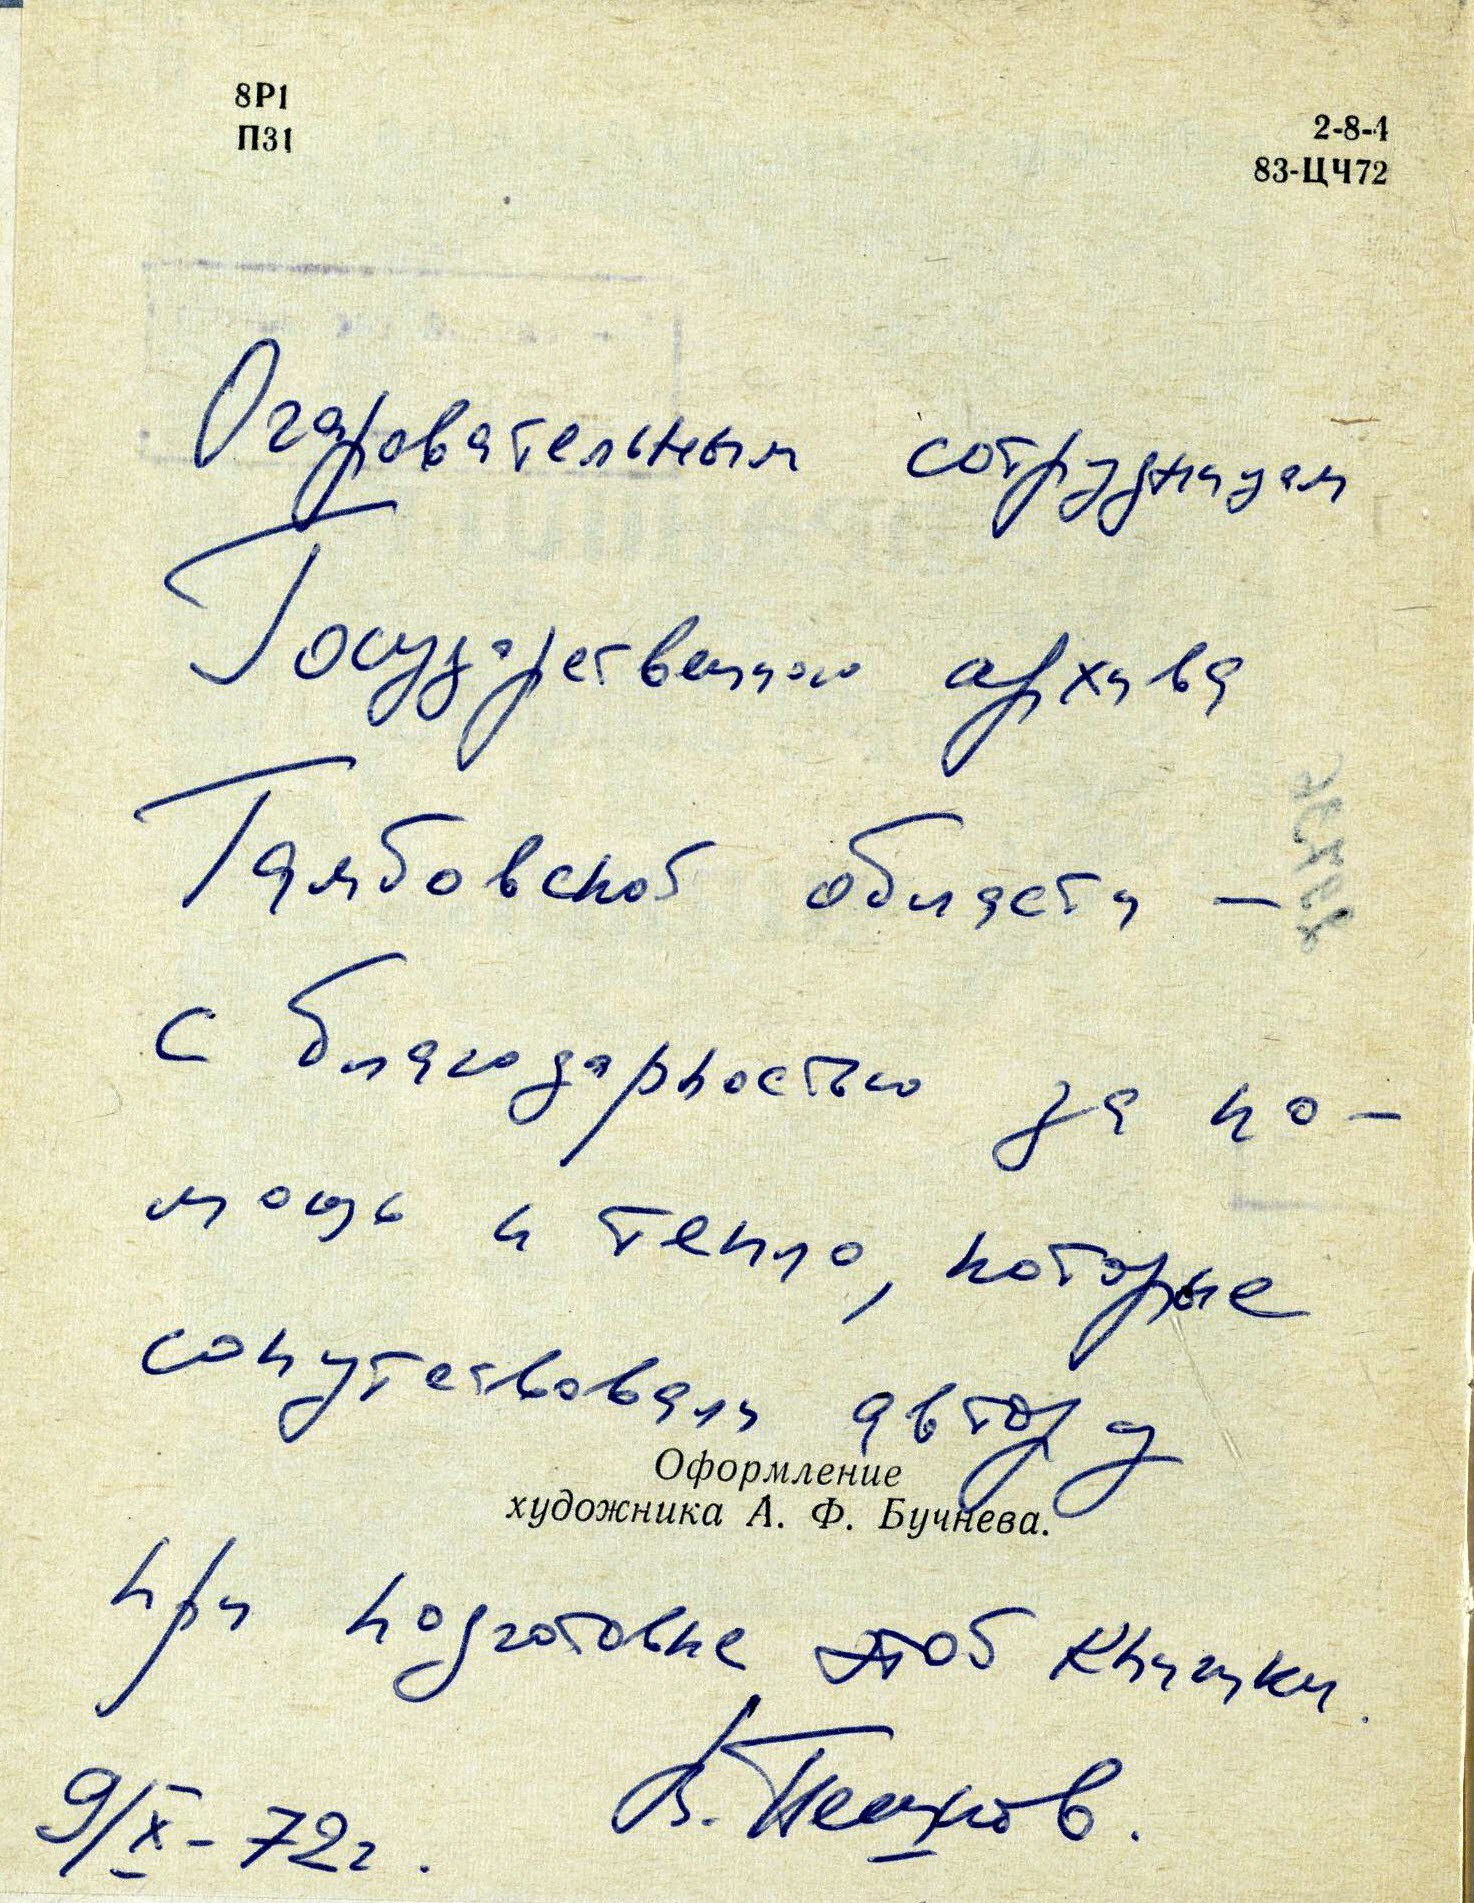 8Р1
П31
2-8-4
83-ЦЧ72
Очаровательным сотрудницам
Государственного архива
Тамбовской области —
с благодарностью за по-
мощь и тепло, которые
сопутствовали автору
Оформление
художника А. Ф. Бучнева.
при подготовке этой книжки.
9/X - 72 г.
В. Пешков.